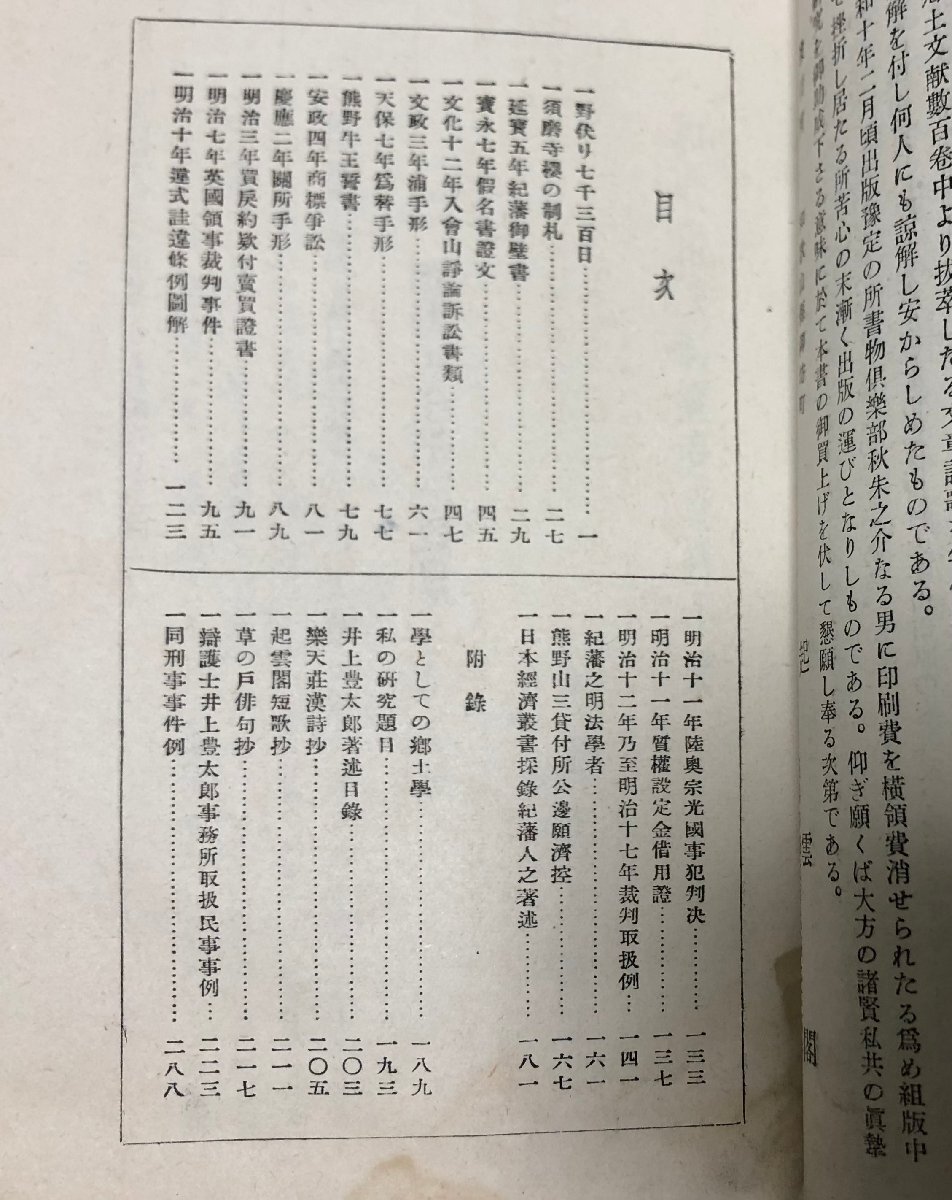 土文献數百卷中より抜萃したる
解を付し何人にも諒解し安からしめたものである。
和十年二月頃出版豫定の所書物倶樂部秋朱之介なる男に印刷費を橫領費消せられたる爲め組版中
挫折し居たる所苦心の末漸く出版の運びとなりしものである。仰ぎ願くば大方の諸賢私共の眞摯
下さる意味に於て本書の御買上げを伏して懇願し奉る次第である。
雲
閣
目次
一野伏リ七千三百日…………一
一須磨寺櫻の制札…………二七
一延寶五年紀藩御壁書…………二九
一寶永七年假名書證文…………四五
一文化十二年入會山諍論訴訟書類…………四七
一文政三年浦手形…………六一
一天保七年爲替手形…………七七
一熊野牛王誓書…………七九
一安政四年商標爭訟…………八一
一慶應二年關所手形…………八九
一明治三年買戾約欵付賣買證書…………九一
一明治七年英國領事裁判事件…………九五
一明治十年違式詿違條例圖解…………一二三
一明治十一年陸奥宗光國事犯判决…………一三三
一明治十一年質權設定金借用證…………一三七
一明治十二年乃至明治十七年裁判取扱例…一四一
一紀藩之明法學者…………一六一
一熊野山三貸付所公邊願濟控…………一六七
一日本經濟叢書採錄紀藩人之著述…………一八一
附錄
一學としての鄕土學…………一八九
一私の硏究題目…………一九三
一井上豊太郎著述目錄…………二〇三
一樂天莊漢詩抄…………二〇五
一起雲閣短歌抄…………二一一
一草の戶俳句抄…………二一七
一辯護士井上豊太郎事務所取扱民事事例…二二三
一同刑事事件例…………二八八